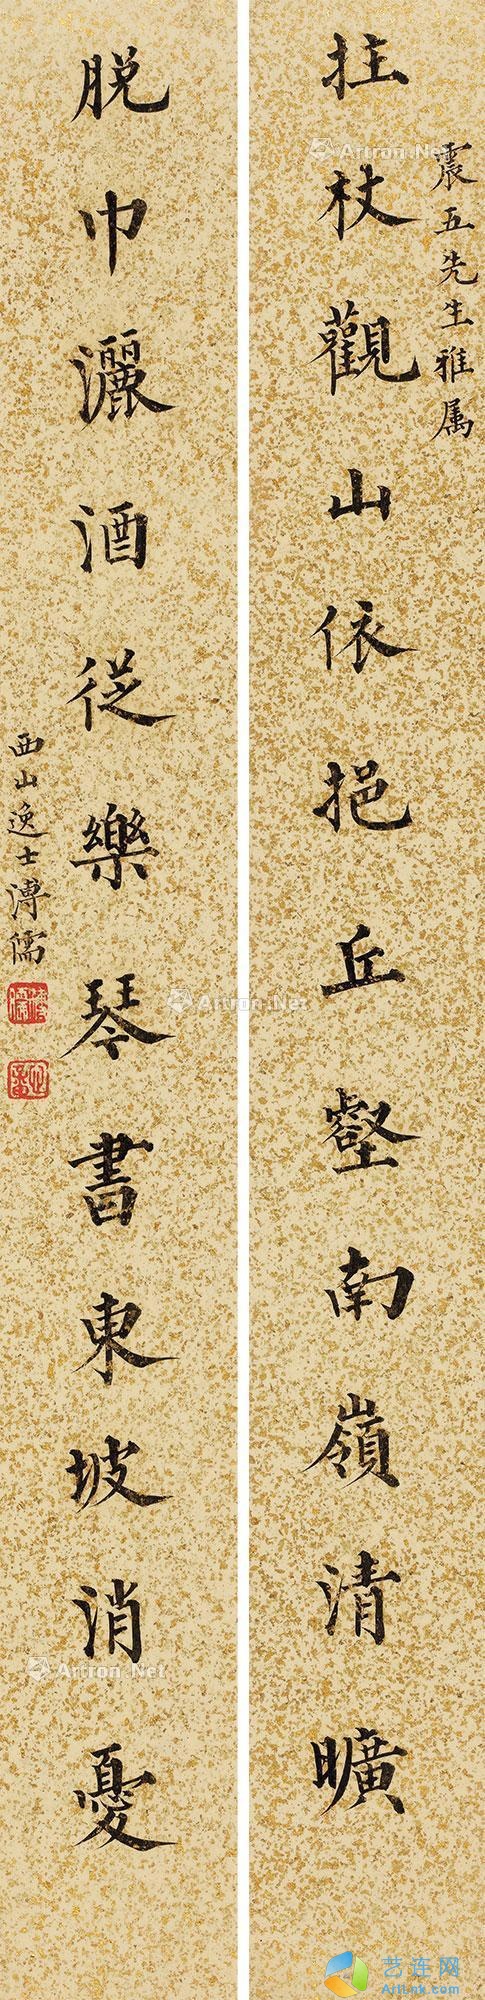 震五先生雅属
拄杖觀山依挹丘壑南嶺清曠
脱巾灑酒從樂琴書東坡消憂
西山逸士溥儒
Artron.Net
Artron.Net
Artron.Net
Artron.Net
艺连网
Artlink.com